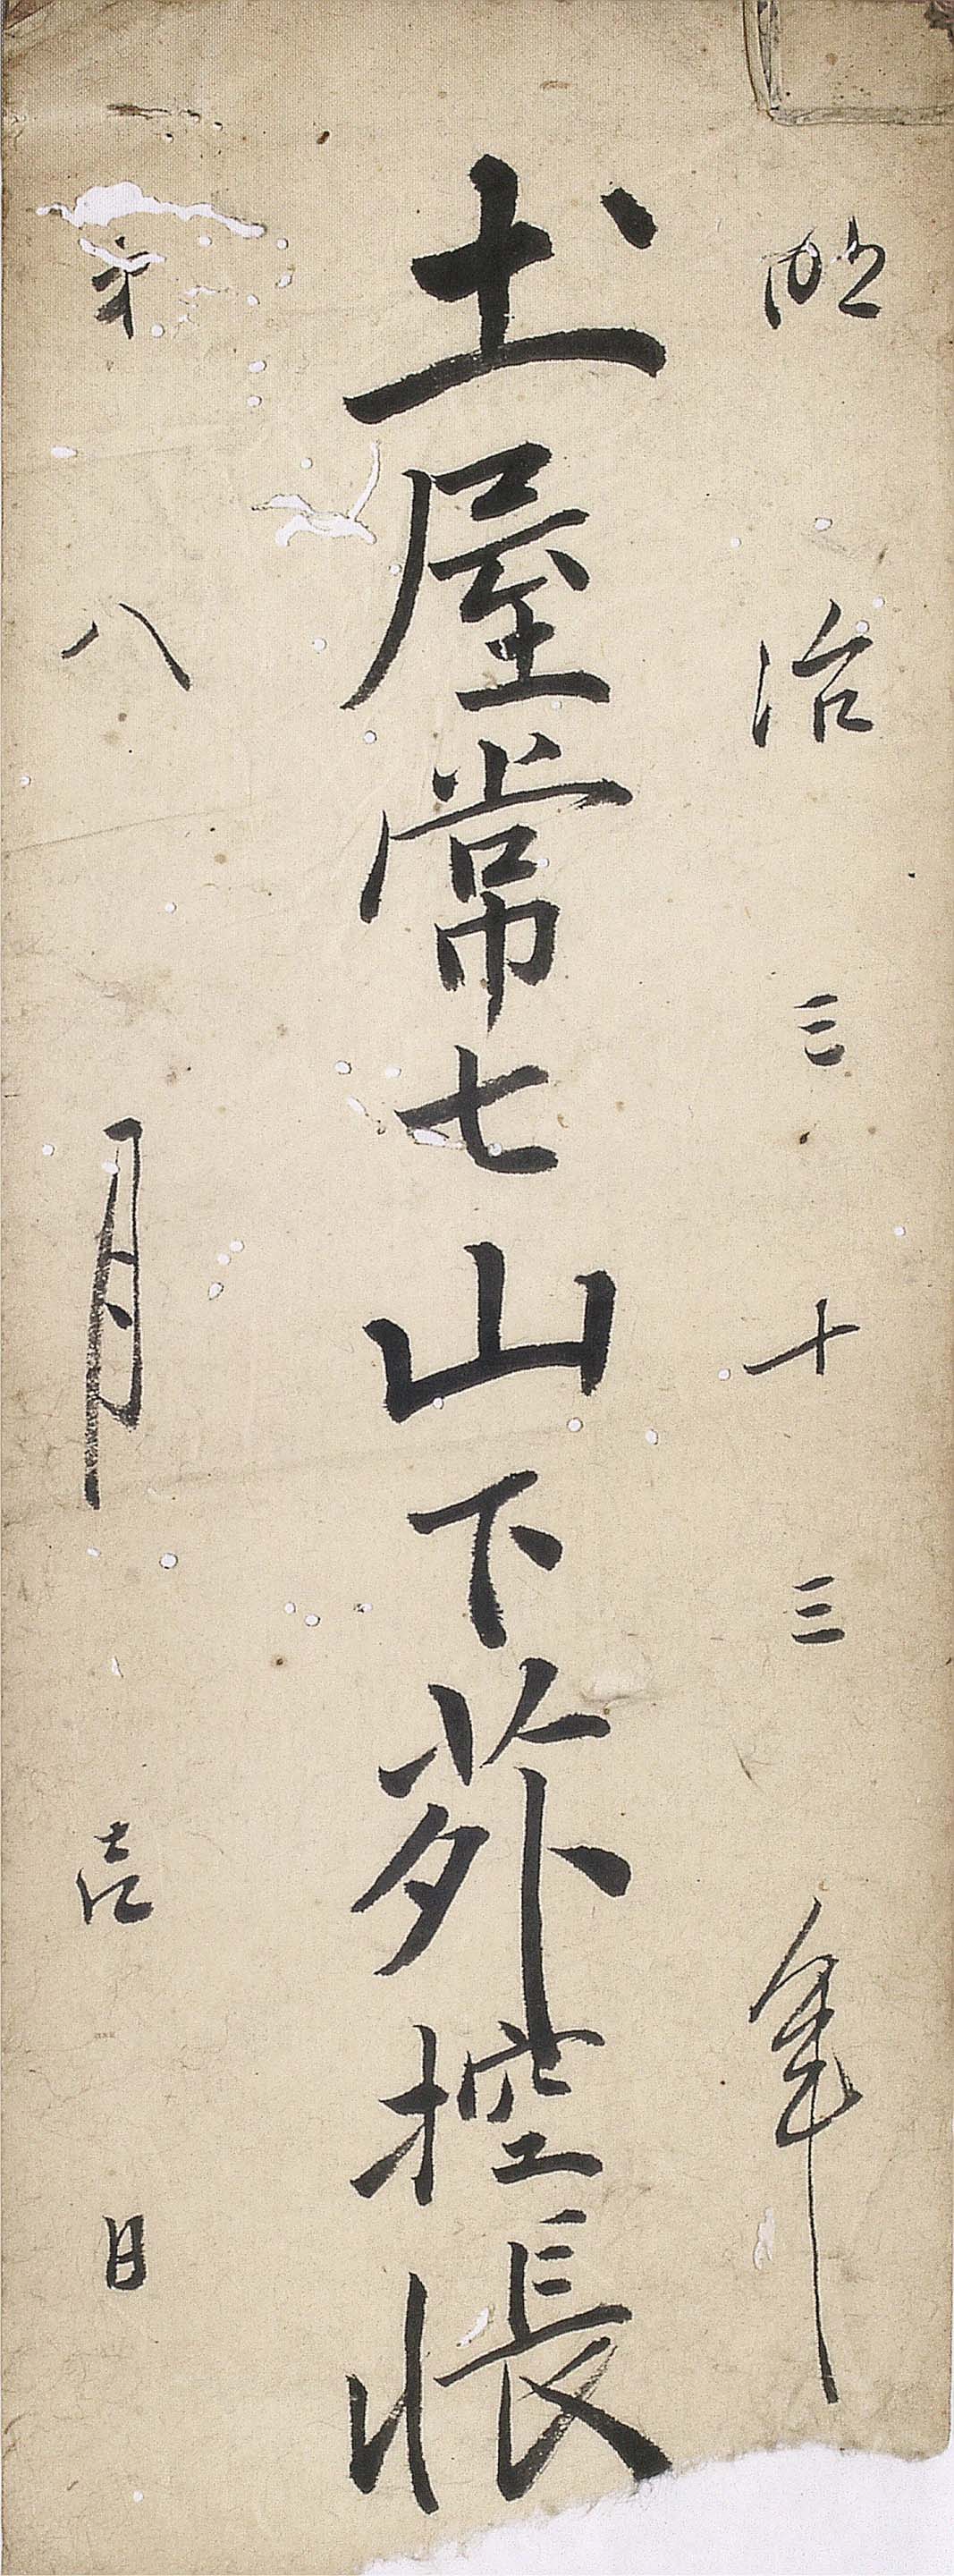 明治三十三年
圡屋常七山下苅控帳
子八月吉日